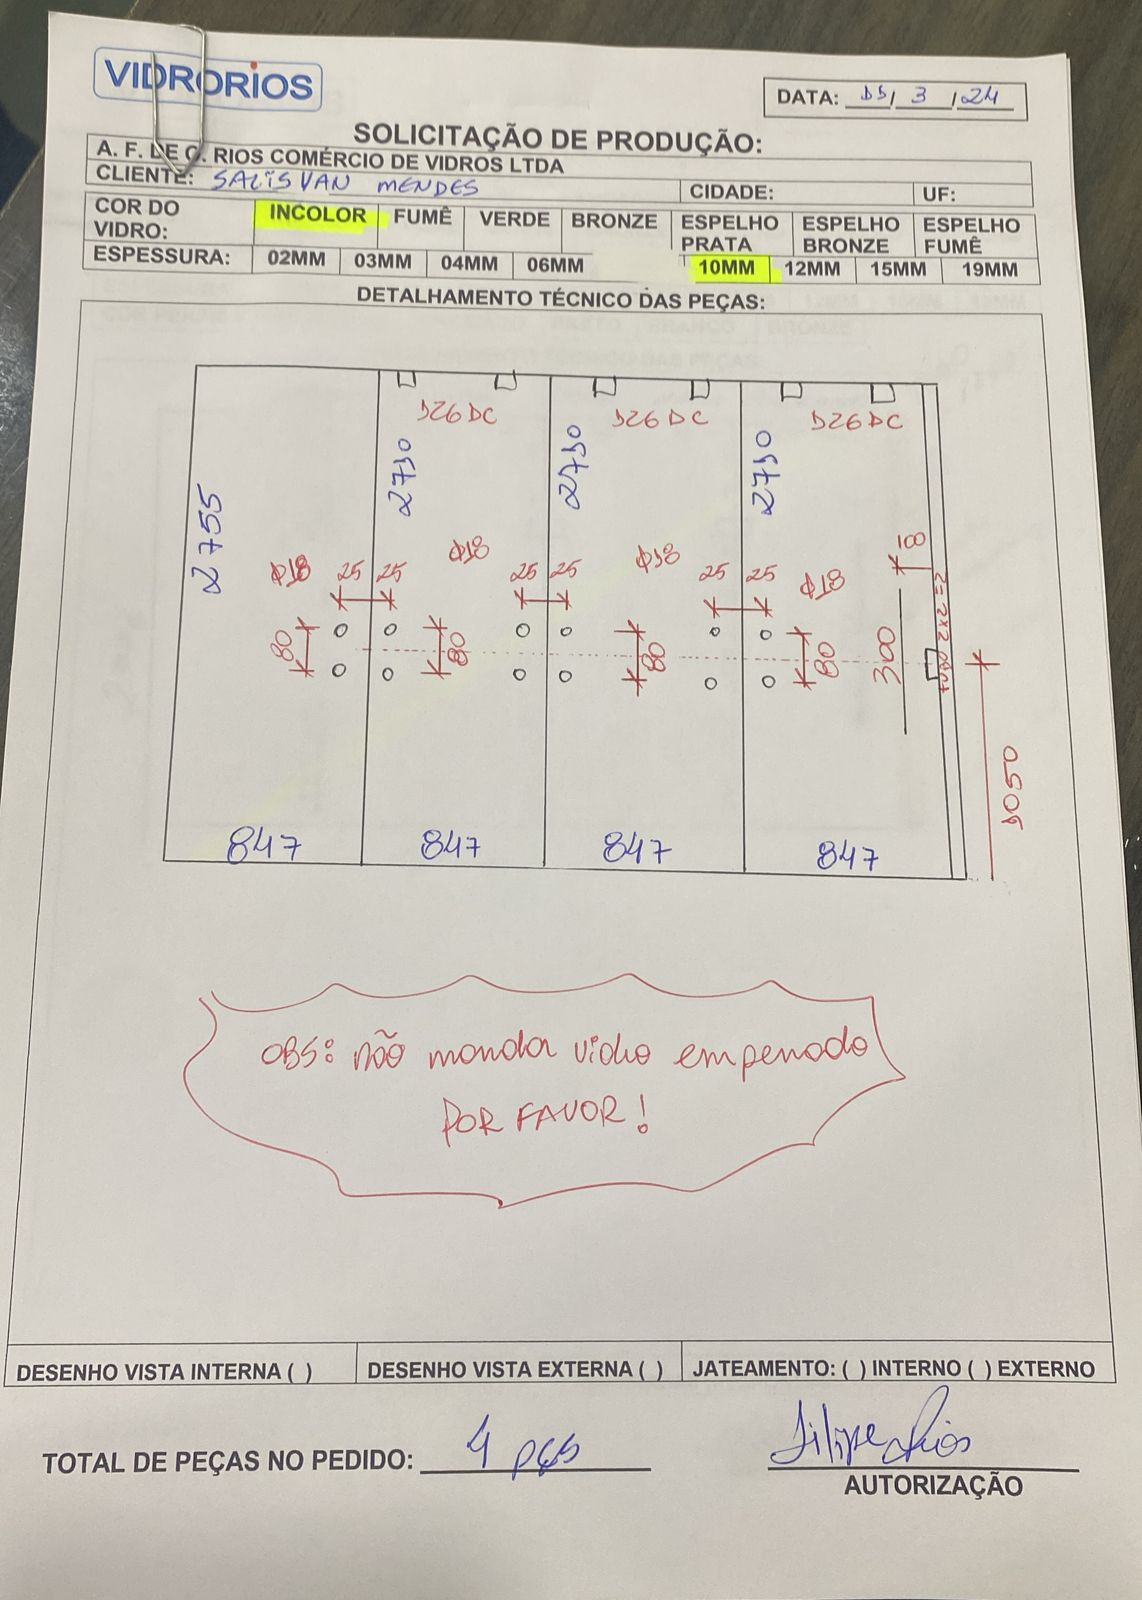 VIDRORIOS
DATA: 15/3/24
SOLICITAÇÃO DE PRODUÇÃO:
A. F. DE O. RIOS COMÉRCIO DE VIDROS LTDA
CLIENTE: SALISVAN MENDES CIDADE: UF:
COR DO VIDRO: INCOLOR FUMÊ VERDE BRONZE ESPELHO PRATA ESPELHO BRONZE ESPELHO FUMÊ
ESPESSURA: 02MM 03MM 04MM 06MM 10MM 12MM 15MM 19MM
DETALHAMENTO TÉCNICO DAS PEÇAS:
126 DC 126 DC 126 DC
2755 2710 2710 2710
Ø18 25 25 Ø18 25 25 Ø18 25 25 Ø18 18
80 80 80 80 300 TUBO 2x2
1050
847 847 847 847
OBS: não mandar vidro empenado
POR FAVOR!
DESENHO VISTA INTERNA ( ) DESENHO VISTA EXTERNA ( ) JATEAMENTO: ( ) INTERNO ( ) EXTERNO
TOTAL DE PEÇAS NO PEDIDO: 4 pçs
Filipe Rios
AUTORIZAÇÃO